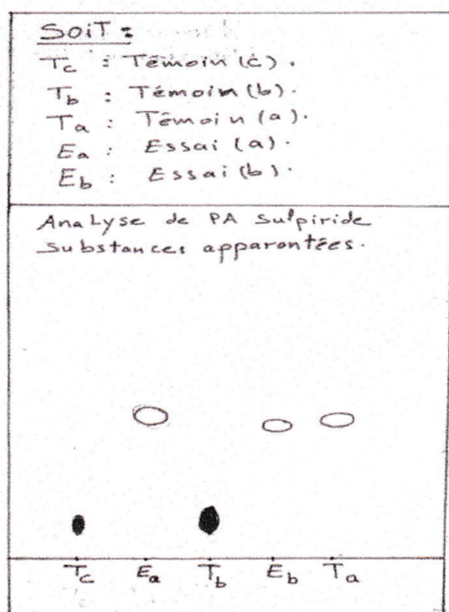 SOIT :
Tc : Témoin (c).
Tb : Témoin (b).
Ta : Témoin (a).
Ea : Essai (a).
Eb : Essai (b).
Analyse de PA Sulpiride
Substances apparontées.
Tc Ea Tb Eb Ta